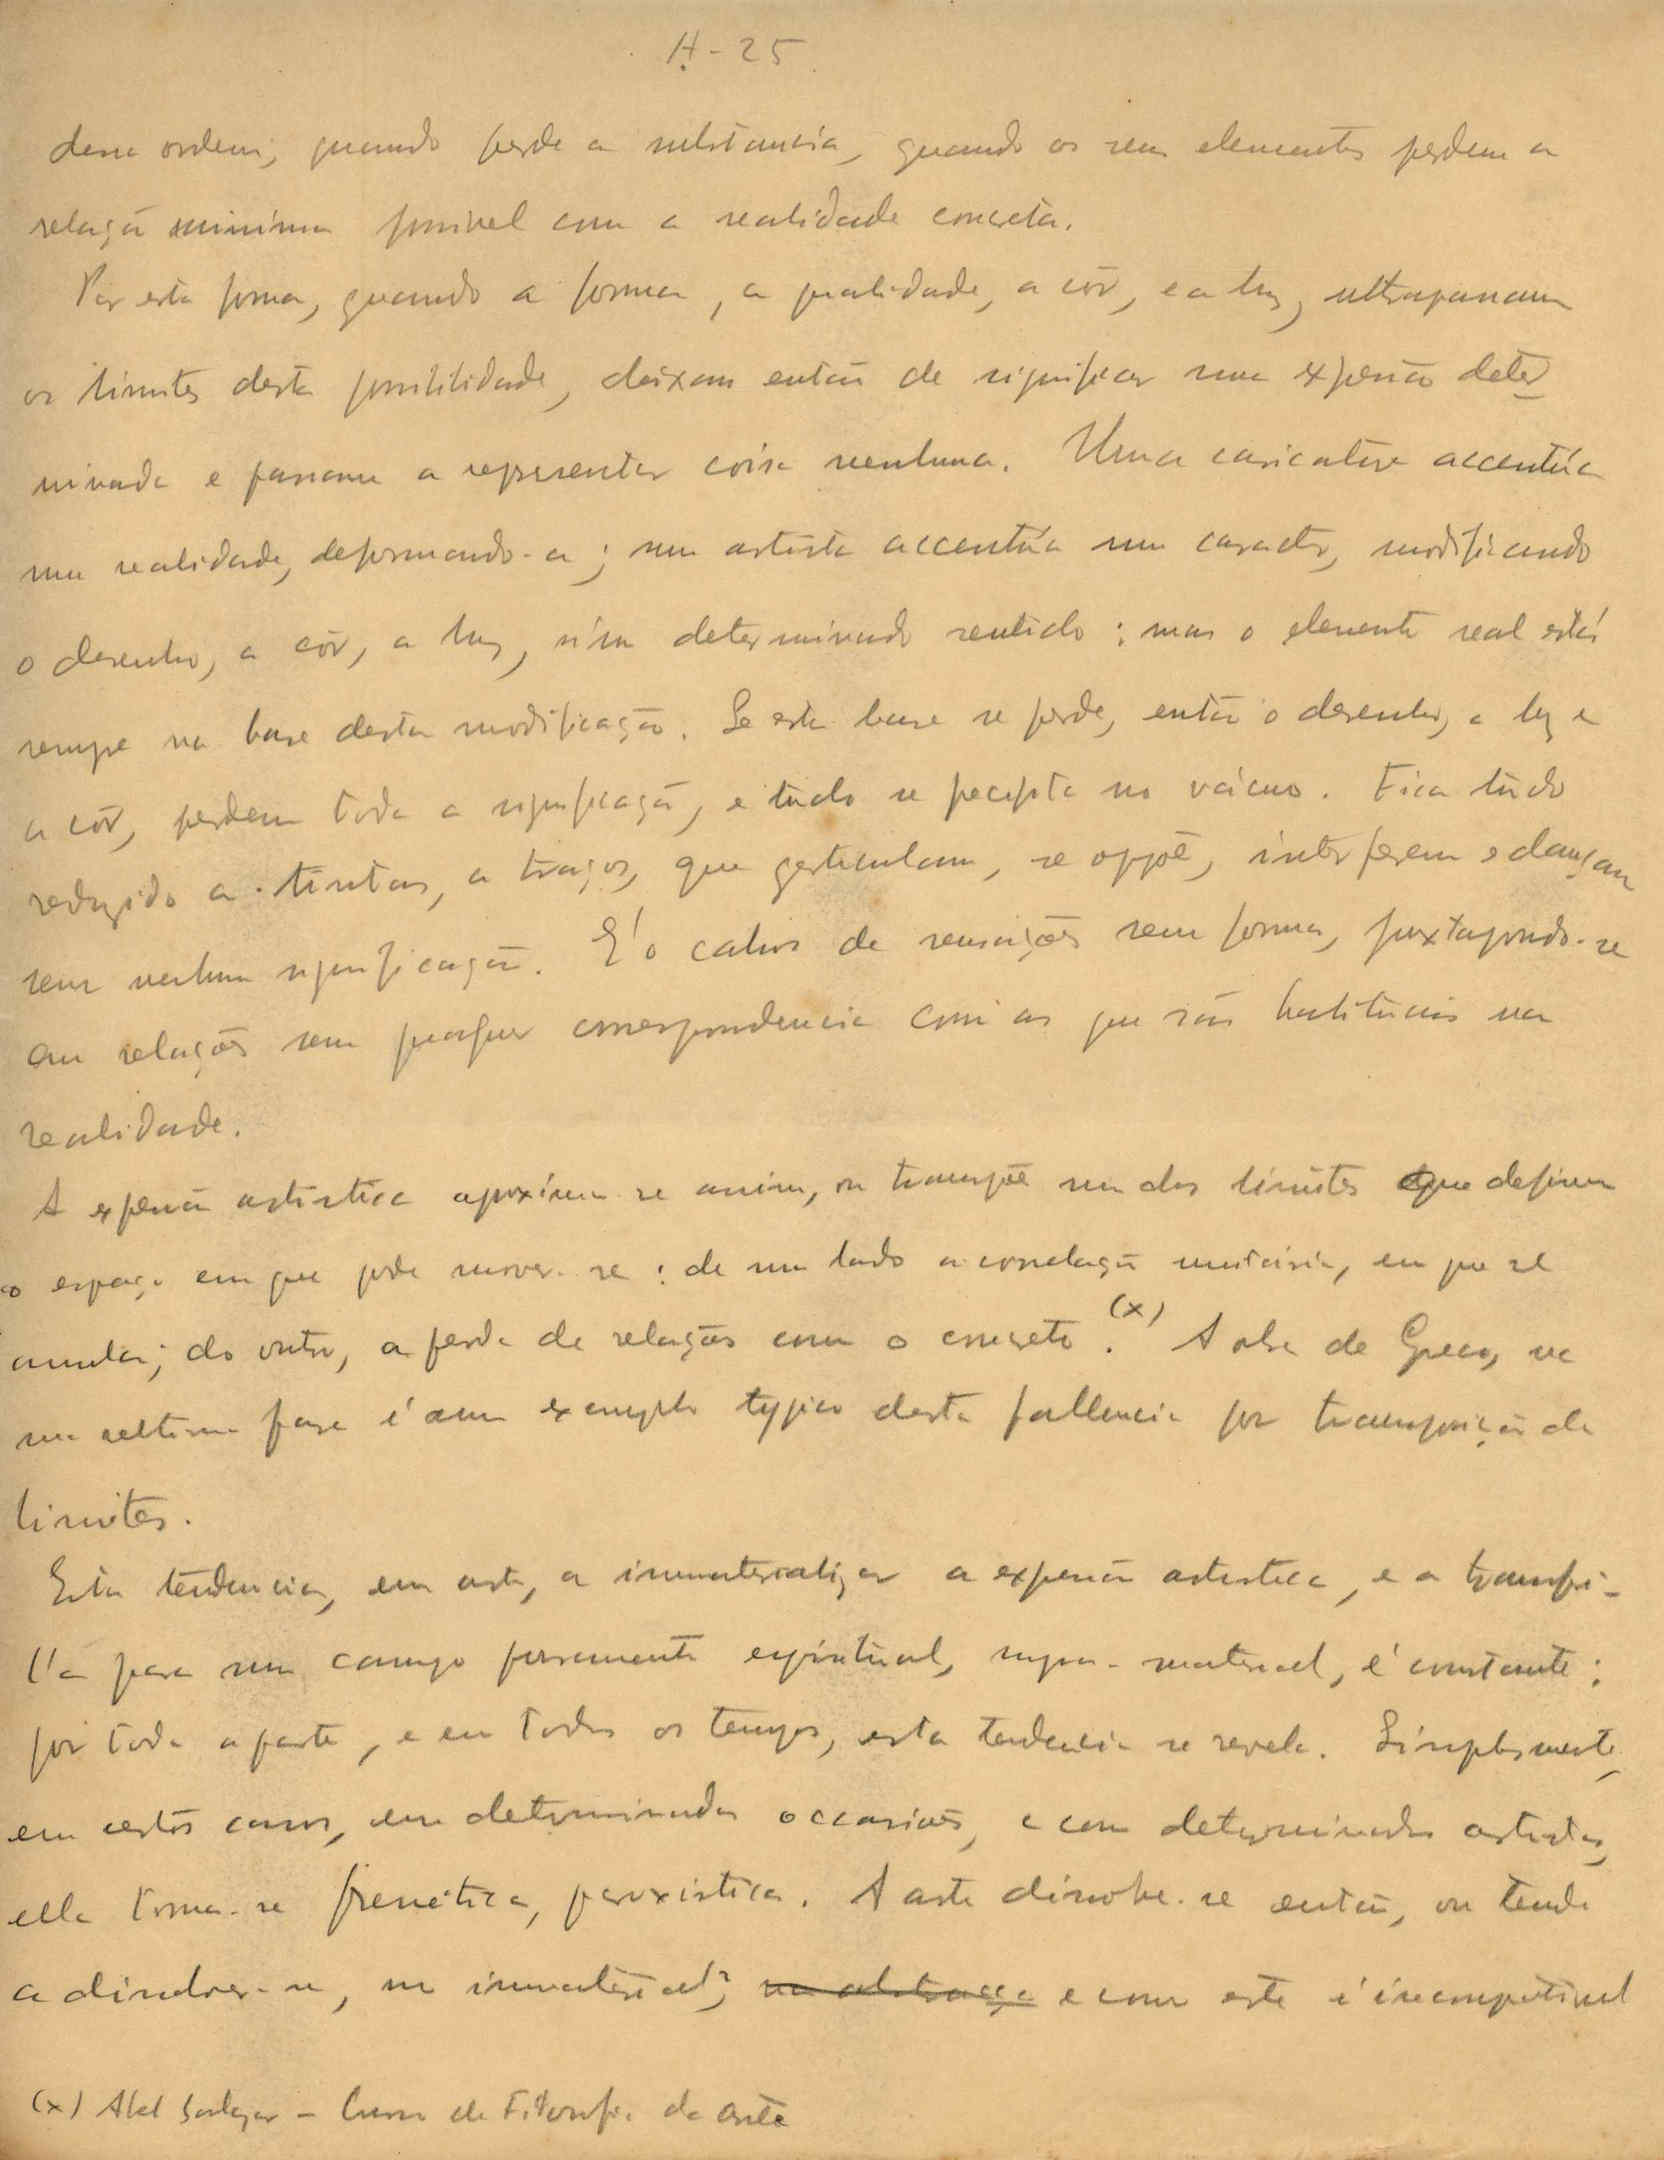 A-25
dessa ordem, quando perde a substancia, quando os seus elementos perdem a
relação minima possivel com a realidade concreta.
Por esta forma, quando a forma, a qualidade, a côr, e a luz, ultrapassam
os limites desta possibilidade, deixam então de significar uma expressão deter
minada e passam a representar coisa nenhuma. Uma caricatura accentúa
uma realidade, deformando-a; um artista accentúa um caracter, modificando
o desenho, a côr, a luz, n'um determinado sentido; mas o elemento real está
sempre na base desta modificação. Se esta base se perde, então o desenho, a luz e
a côr, perdem toda a significação, e tudo se precipita no vácuo. Fica tudo
reduzido a tintas, a traços, que gesticulam, se oppõe, interferem e dançam
sem nenhuma significação. É o cahos de sensações sem forma, juxtapondo-se
em relações sem qualquer correspondencia com as que são habituais na
realidade.
A expressão artistica aproxima-se assim, ou transpõe um dos limites que definem
o espaço em que pode mover-se: de um lado a correlação em que se
annula; do outro, a perda de relações com o concreto. (x) A obra de Greco, na
sua ultima fase é um exemplo typico desta fallencia por transposição de
limites.
Esta tendencia, em arte, a immaterializar a expressão artistica, e a transpô-
l'a para um campo puramente espiritual, supra-material, é constante;
por toda a parte, e em todos os tempos, esta tendencia se revela. Simplesmente,
em certos casos, em determinadas occasiões, e com determinados artistas,
ella torna-se frenética, paroxistica. A arte dissolve-se então, ou tende
a dissolver-se, no immaterial, na abstracção e com este é incompativel
(x) Abel Salazar - Curso de Filosofia da Arte